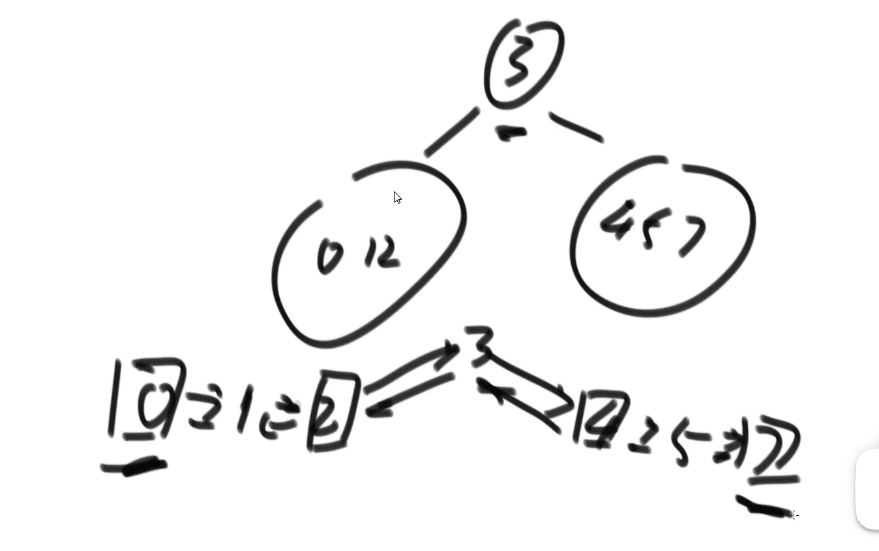 3
0 12
4 5 7
3
0 ⇄ 1 ⇄ 2
4 ⇄ 5 ⇄ 7